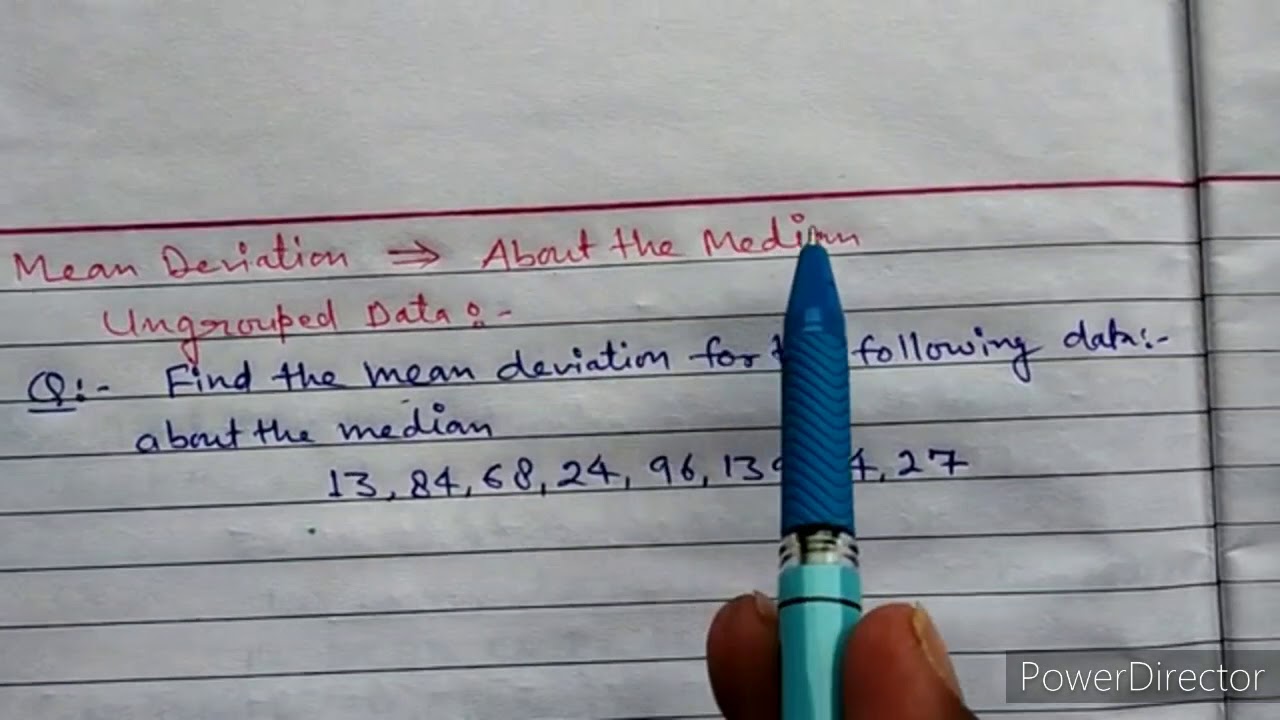 Mean Deviation ⇒ About the Median
Ungrouped Data:-
Q:- Find the mean deviation for following data:-
about the median
13, 84, 68, 24, 96, 27
PowerDirector